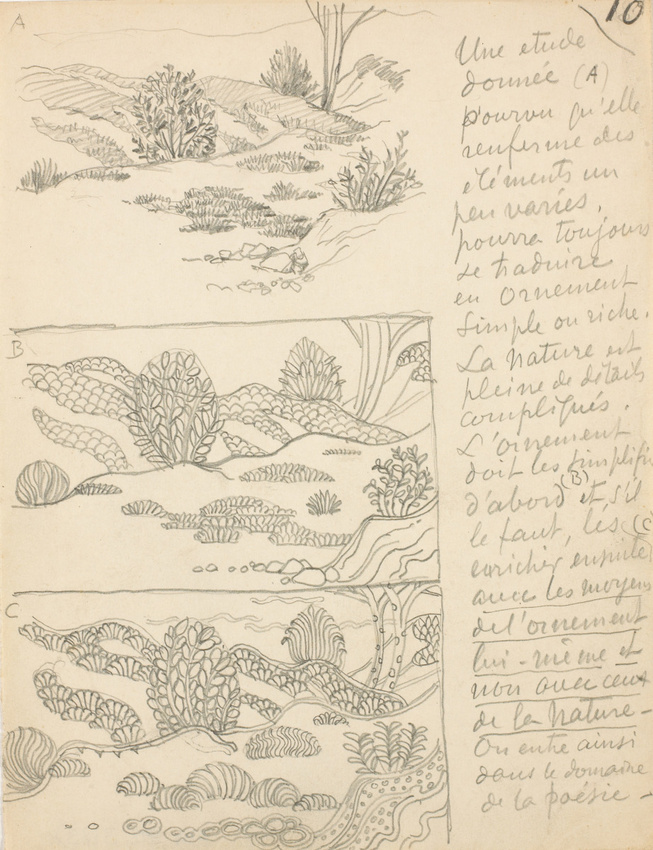 A
10
Une etude
donnée (A)
pourvu qu'elle
renferme des
éléments un
peu variés,
pourra toujours
se traduire
en ornement
simple ou riche.
La Nature est
pleine de détails
compliqués.
L'ornement
doit les simplifier
d'abord (B) et, s'il
le faut, les (C)
enrichir ensuite
avec les moyens
de l'ornement
lui-même et
non avec ceux
de la Nature -
On entre ainsi
dans le domaine
de la poésie -
B
C